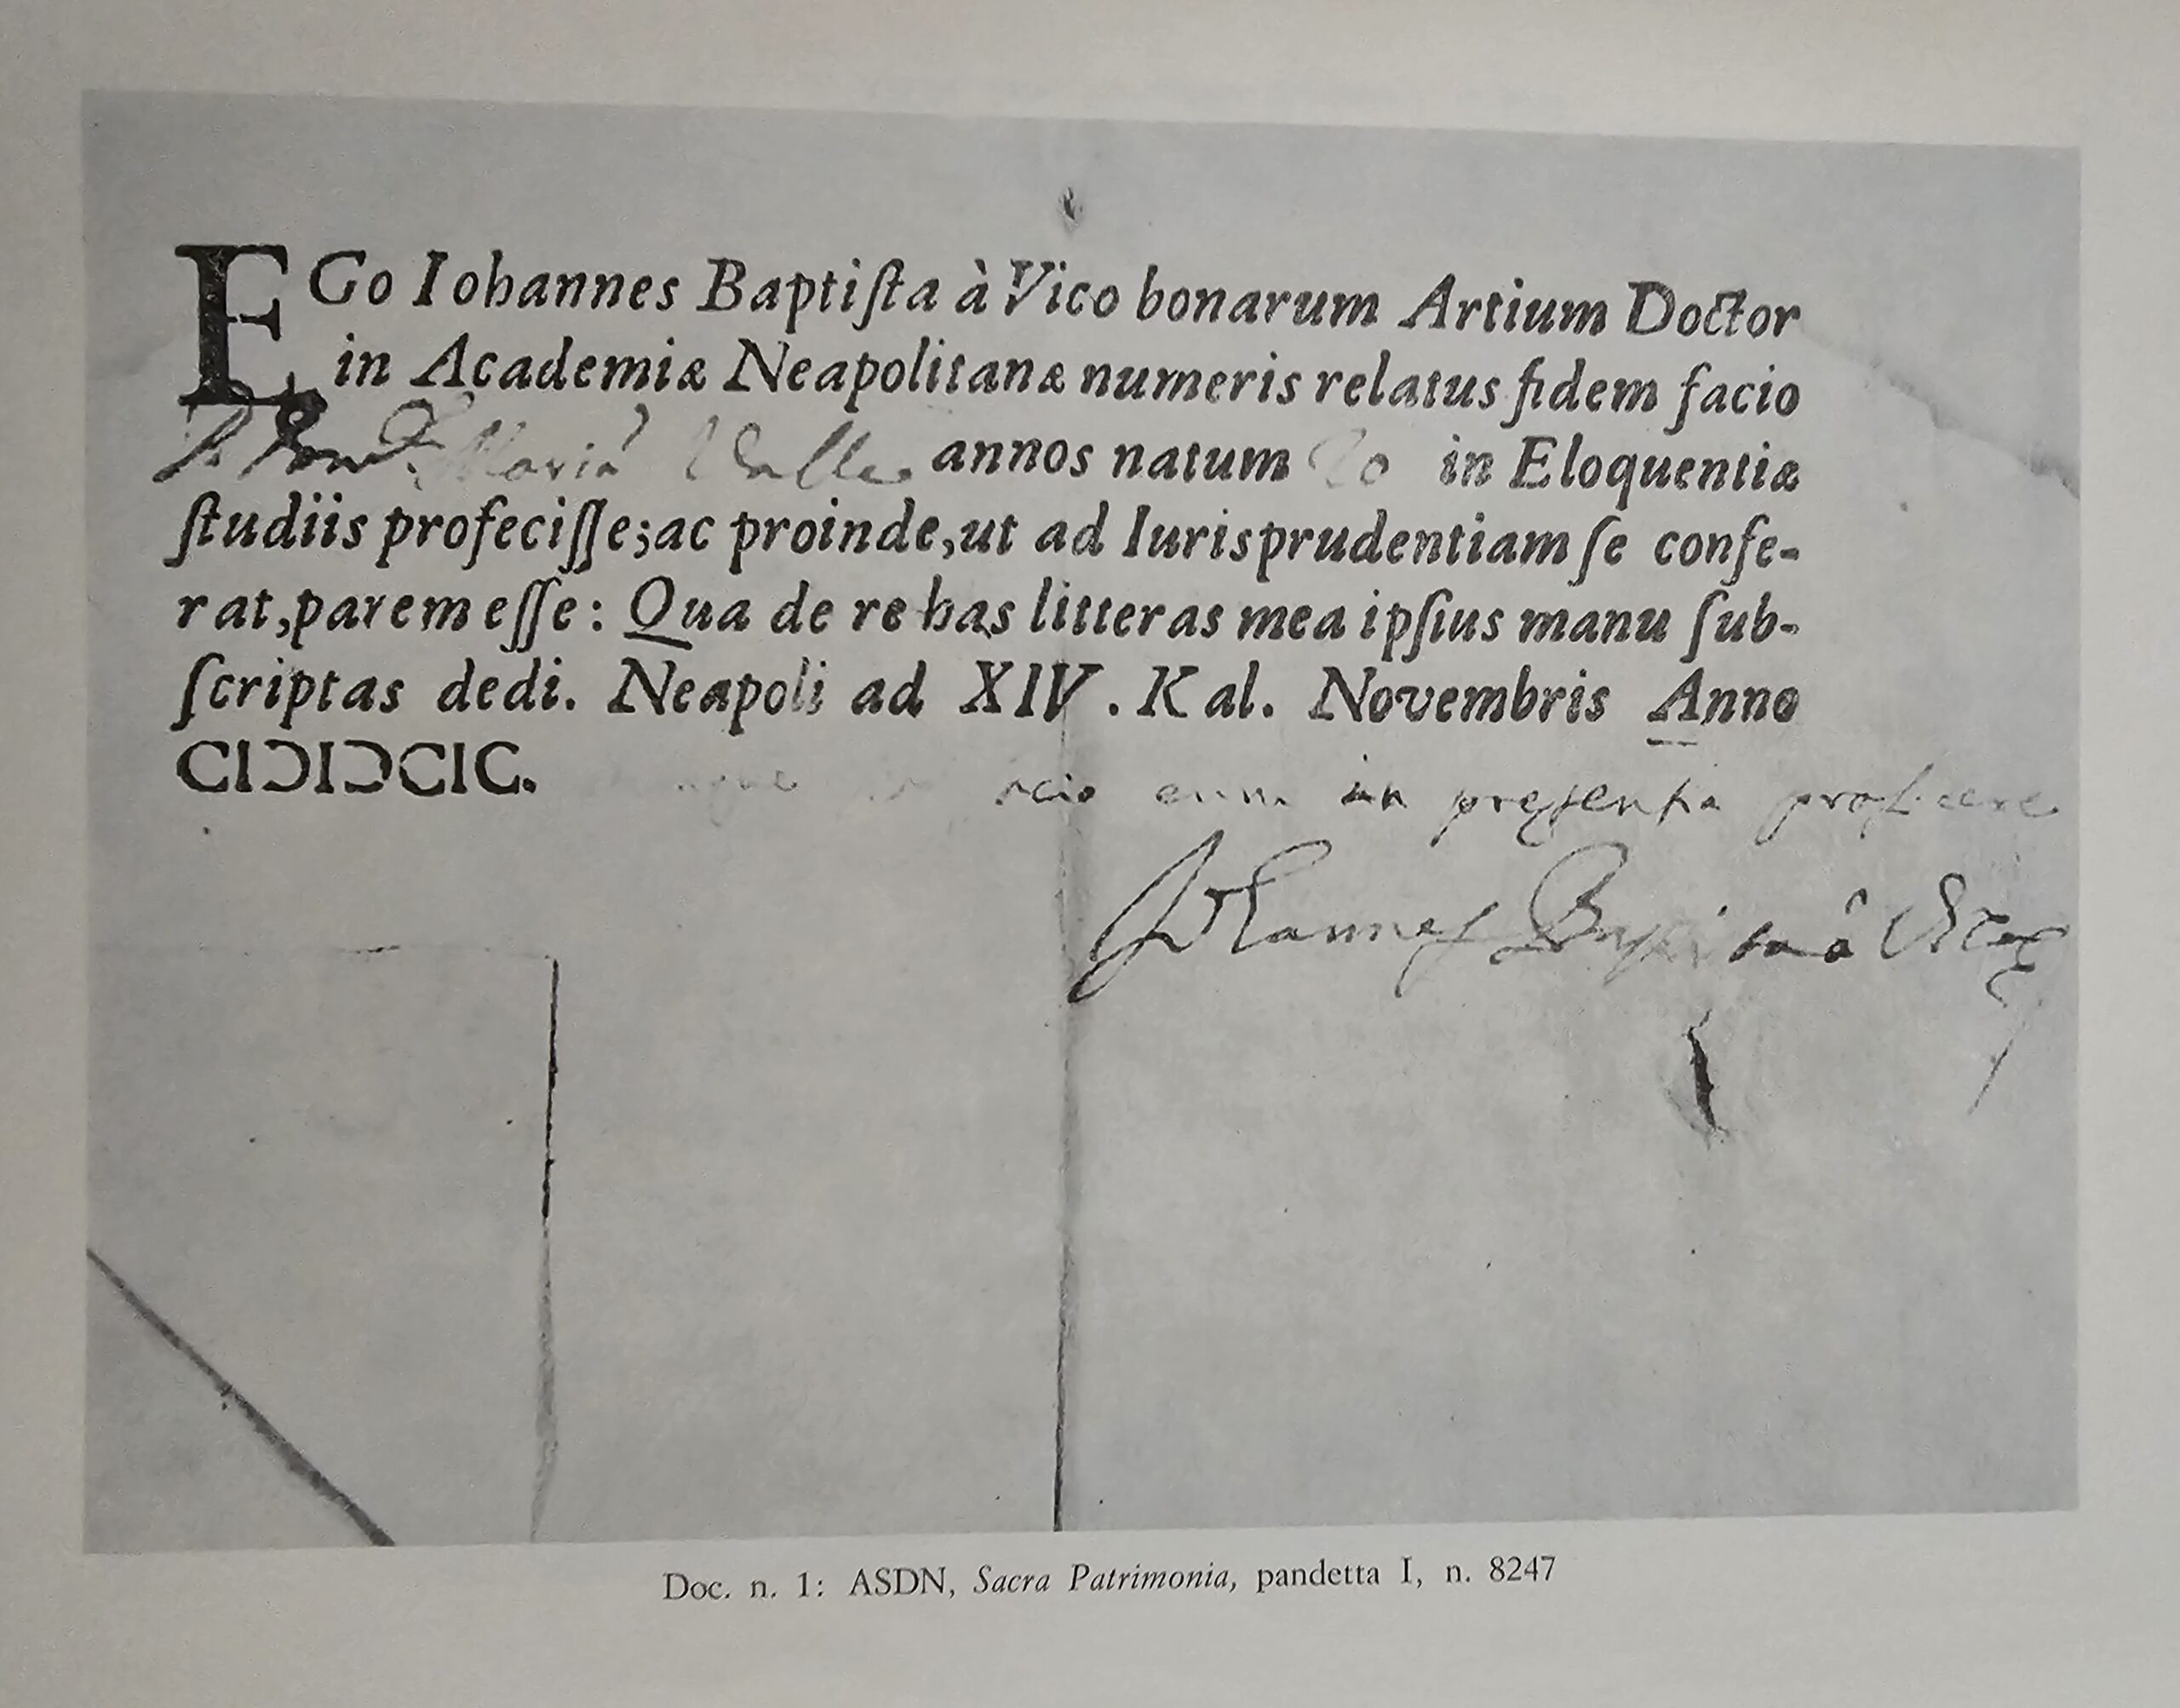 EGo Iohannes Baptiſta à Vico bonarum Artium Doctor
in Academiæ Neapolitanæ numeris relatus fidem facio
Maria Valle annos natum 20 in Eloquentiæ
ſtudiis profeciſſe; ac proinde, ut ad Iurisprudentiam ſe confe-
rat, parem eſſe: Qua de re has litteras mea ipſius manu ſub-
ſcriptas dedi. Neapoli ad XIV. Kal. Novembris Anno
CIↃIↃCIC.
scio eum in preſentia proficere
Iohannes Baptista â Vico
Doc. n. 1: ASDN, Sacra Patrimonia, pandetta I, n. 8247